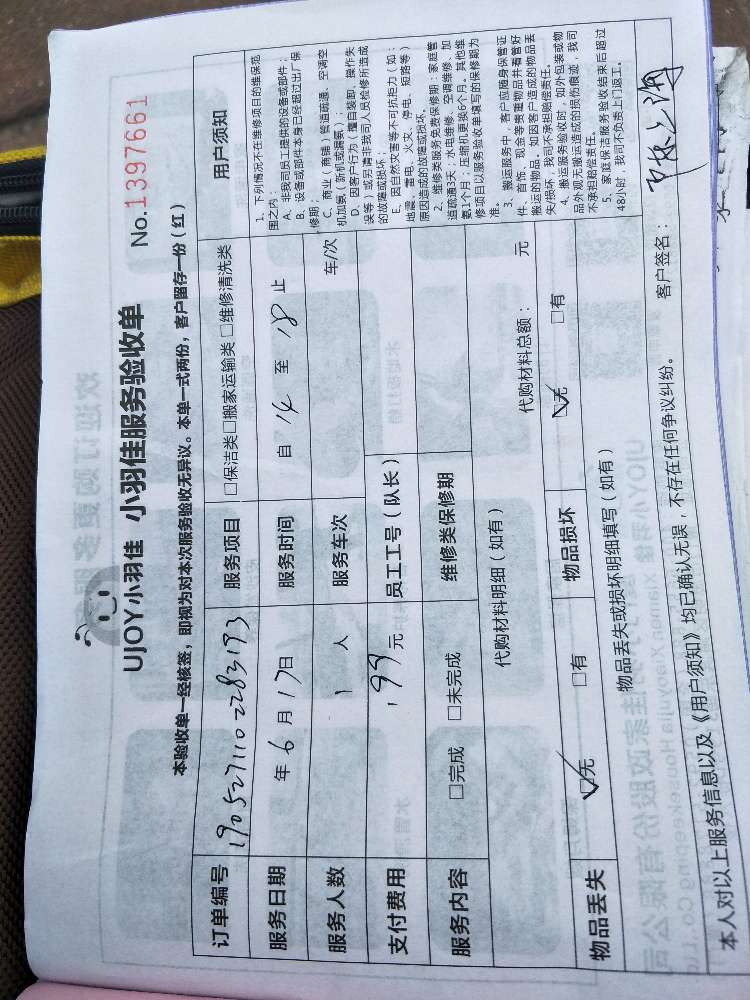 UJOY小羽佳 小羽佳服务验收单
No.1397661
本验收单一经核签，即视为对本次服务验收无异议。本单一式两份，客户留存一份（红）
订单编号 1905271102283193 服务项目 □保洁类□搬家运输类 □维修清洗类
服务日期 年 6 月 17 日 服务时间 自 14 至 18 止
服务人数 1 人 服务车次 车/次
支付费用 199 元 员工工号（队长）
服务内容 □完成 □未完成 维修类保修期
代购材料明细（如有） 代购材料总额： 元
物品丢失 ☑无 □有 物品损坏 ☑无 □有
物品丢失或损坏明细填写（如有）
本人对以上服务信息以及《用户须知》均已确认无误，不存在任何争议纠纷。 客户签名：
用户须知
1、下列情况不在维修项目的维保范
围之内：
A、非我司员工提供的设备或部件；
B、设备或部件本身已经超过出厂保
修期；
C、商业（商铺）管道疏通、空调空
机加氨（新机或漏氨）；
D、因客户行为（擅自装卸、操作失
误等）或另请非我司人员检修所造成
的故障或损坏；
E、因自然灾害等不可抗拒力（如：
地震、雷电、火灾、停电、短路等）
原因造成的故障或损坏。
2、维修类服务免费保修期：家庭管
道疏通3天；水电维修、空调维修、加
氨1个月；压缩机更换6个月。其他维
修项目以服务验收单填写的保修期为
准。
3、搬运服务中，客户应随身保管证
件、首饰、现金等贵重物品并看管好
搬运的物品，如因客户造成的物品丢
失/损坏，我司不承担赔偿责任。
4、搬运服务验收时，如外包装或物
品外观无搬运造成的损伤痕迹，我司
不承担赔偿责任。
5、家庭保洁服务验收结束后超过
48小时，我司不负责上门返工。